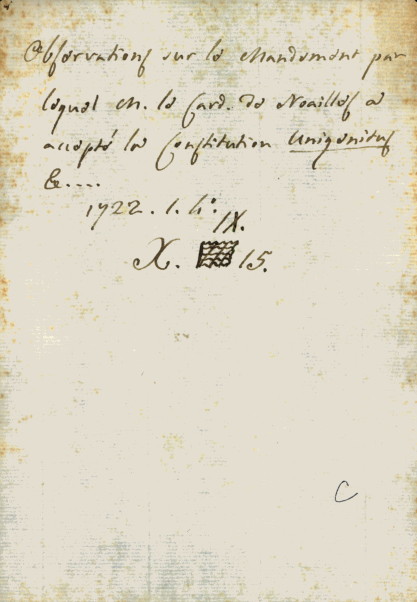 Observations sur le Mandement par
lequel M. le Card. de Noailles a
accepté la Constitution Unigenitus
&....
1722. 1. 4°.
IX.
X. 15.
C